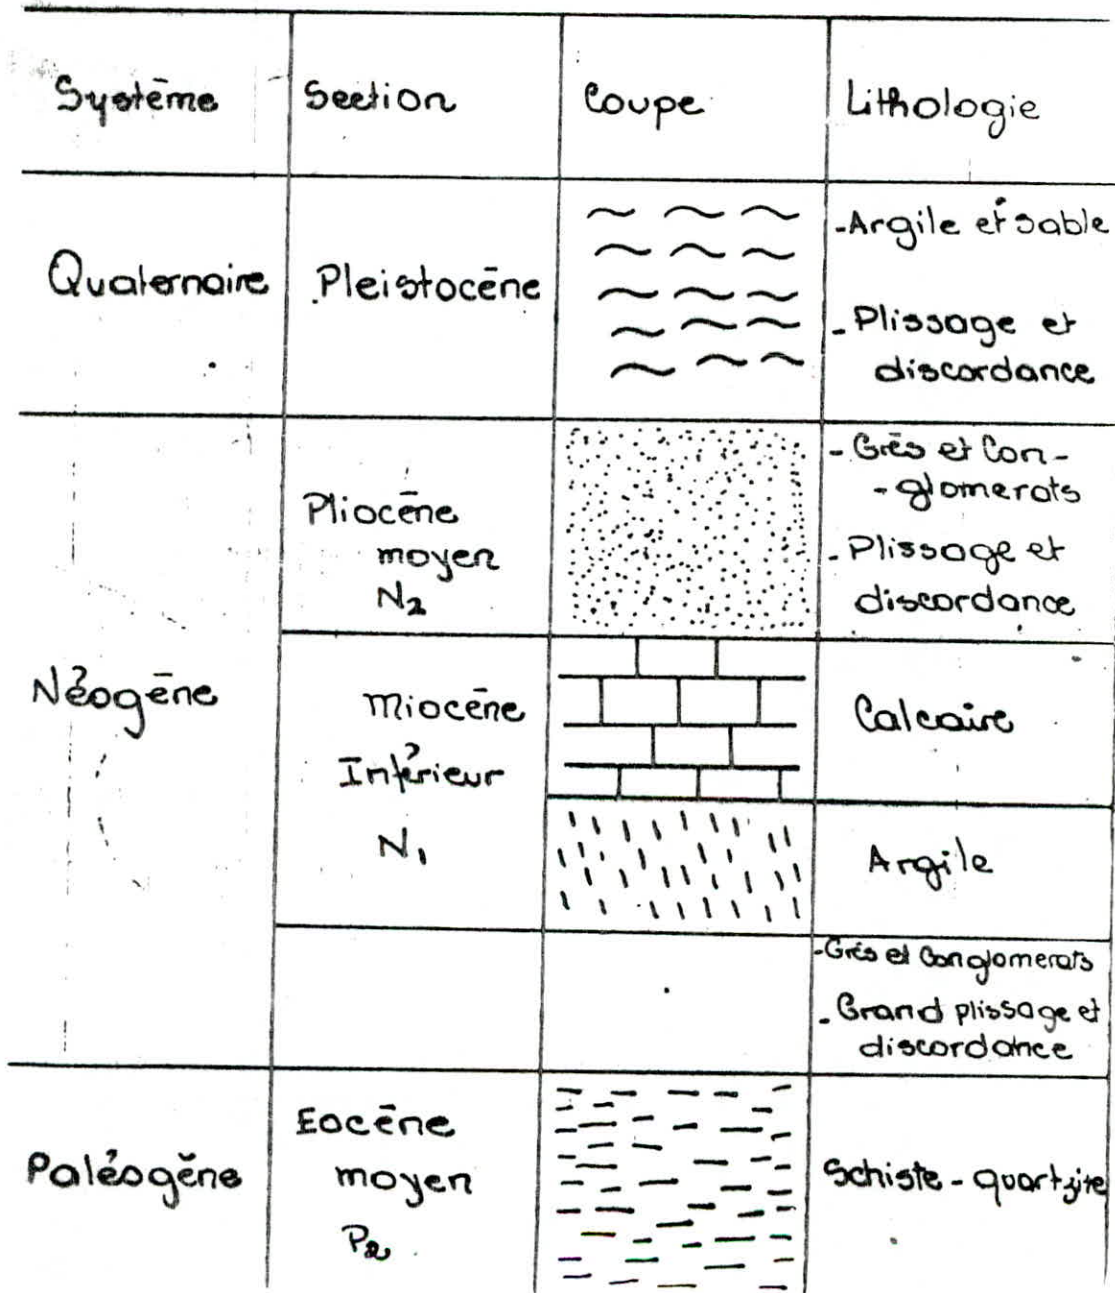 Système
Section
Coupe
Lithologie
Quaternaire
Pleistocène
-Argile et sable
- Plissage et
discordance
Néogène
Pliocène
moyen
N2
- Grès et Con-
- glomerats
- Plissage et
discordance
Miocène
Inférieur
N1
Calcaire
Argile
-Grès et Conglomerats
- Grand plissage et
discordance
Paléogène
Eocène
moyen
P2
Schiste - quartzite